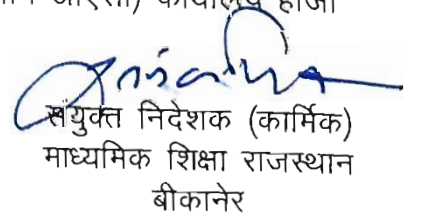 कार्यालय हाजा
संयुक्त निदेशक (कार्मिक)
माध्यमिक शिक्षा राजस्थान
बीकानेर